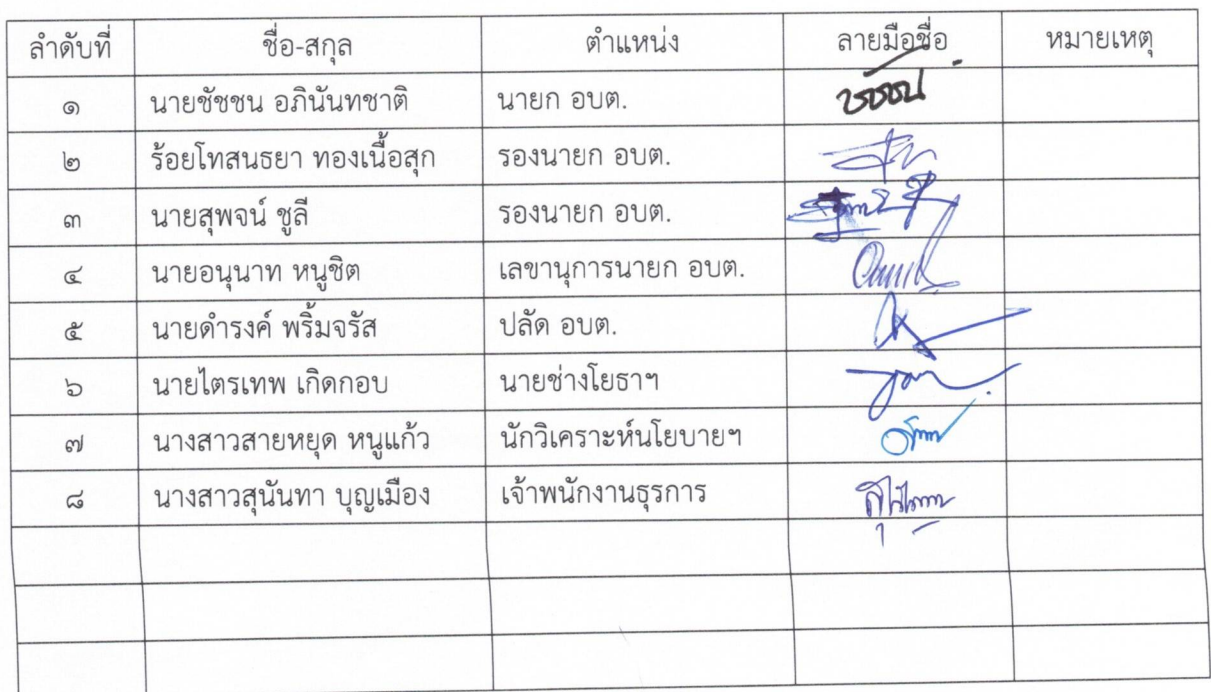 ลำดับที่ ชื่อ-สกุล ตำแหน่ง ลายมือชื่อ หมายเหตุ
๑ นายชัชชน อภินันทชาติ นายก อบต. ชัชชน์
๒ ร้อยโทสนธยา ทองเนื้อสุก รองนายก อบต.
๓ นายสุพจน์ ชูลี รองนายก อบต.
๔ นายอนุนาท หนูชิต เลขานุการนายก อบต.
๕ นายดำรงค์ พริ้มจรัส ปลัด อบต.
๖ นายไตรเทพ เกิดกอบ นายช่างโยธาฯ
๗ นางสาวสายหยุด หนูแก้ว นักวิเคราะห์นโยบายฯ
๘ นางสาวสุนันทา บุญเมือง เจ้าพนักงานธุรการ